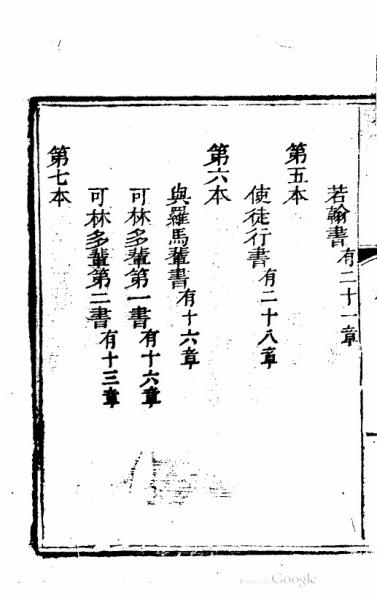 若翰書有二十一章
第五本
使徒行書有二十八章
第六本
與羅馬輩書有十六章
可林多輩第一書有十六章
可林多輩第二書有十三章
第七本
Google